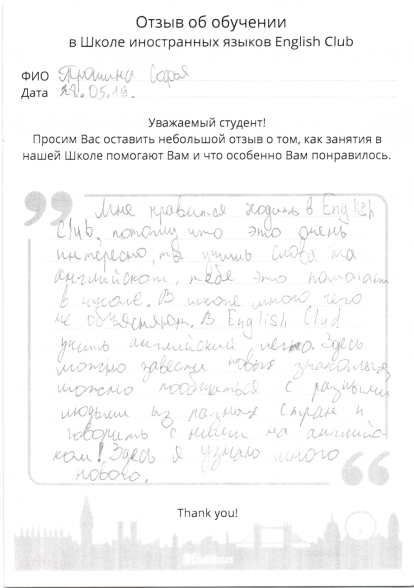 Отзыв об обучении
в Школе иностранных языков English Club
ФИО Трошина Софья
Дата 28.05.19.
Уважаемый студент!
Просим Вас оставить небольшой отзыв о том, как занятия в
нашей Школе помогают Вам и что особенно Вам понравилось.
Мне нравится ходить в English
Club, потому что это очень
интересно, ты учишь слова на
английском, тебе это помогает
в школе. В школе много чего
не объясняют. В English Clud
учить английский легко. Здесь
можно завести новые знакомства,
можно пообщаться с разными
людьми из разных стран и
говорить с ними на английс-
ком! Здесь я узнаю много
нового.
Thank you!